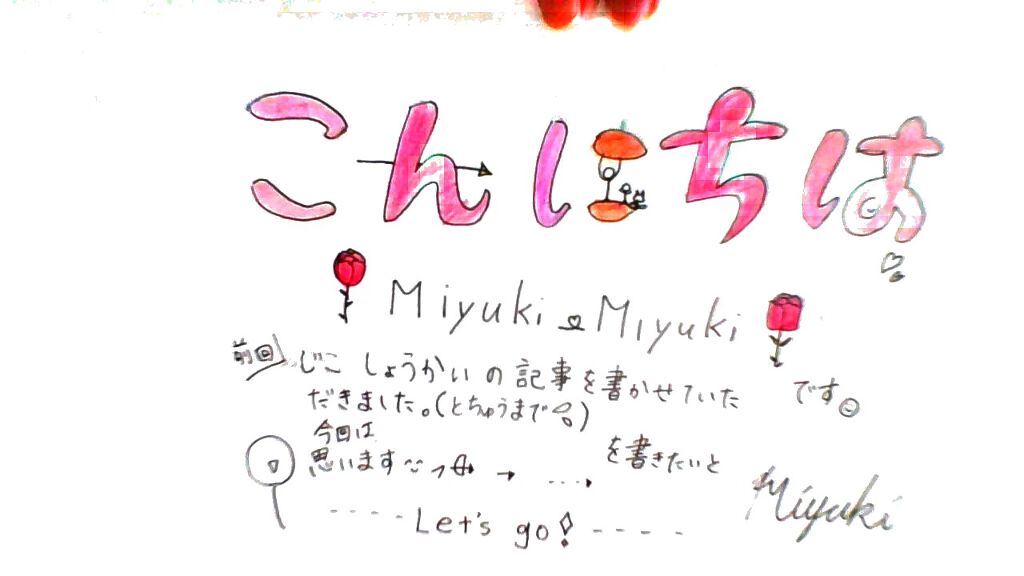 こんにちは
Miyuki Miyuki
です
前回 じこしょうかいの記事を書かせていた
だきました。(とちゅうまで)
今回は
を書きたいと
思います
Let's go!
Miyuki